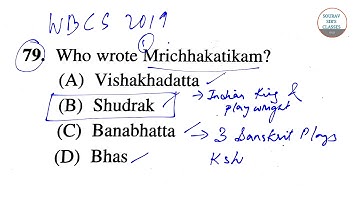 WBCS 2019
SOURAV
SIR'S
CLASSES
79. Who wrote Mrichhakatikam?
(A) Vishakhadatta
(B) Shudrak → Indian King &
playwright
(C) Banabhatta → 3 Sanskrit Plays
(D) Bhas Ksh